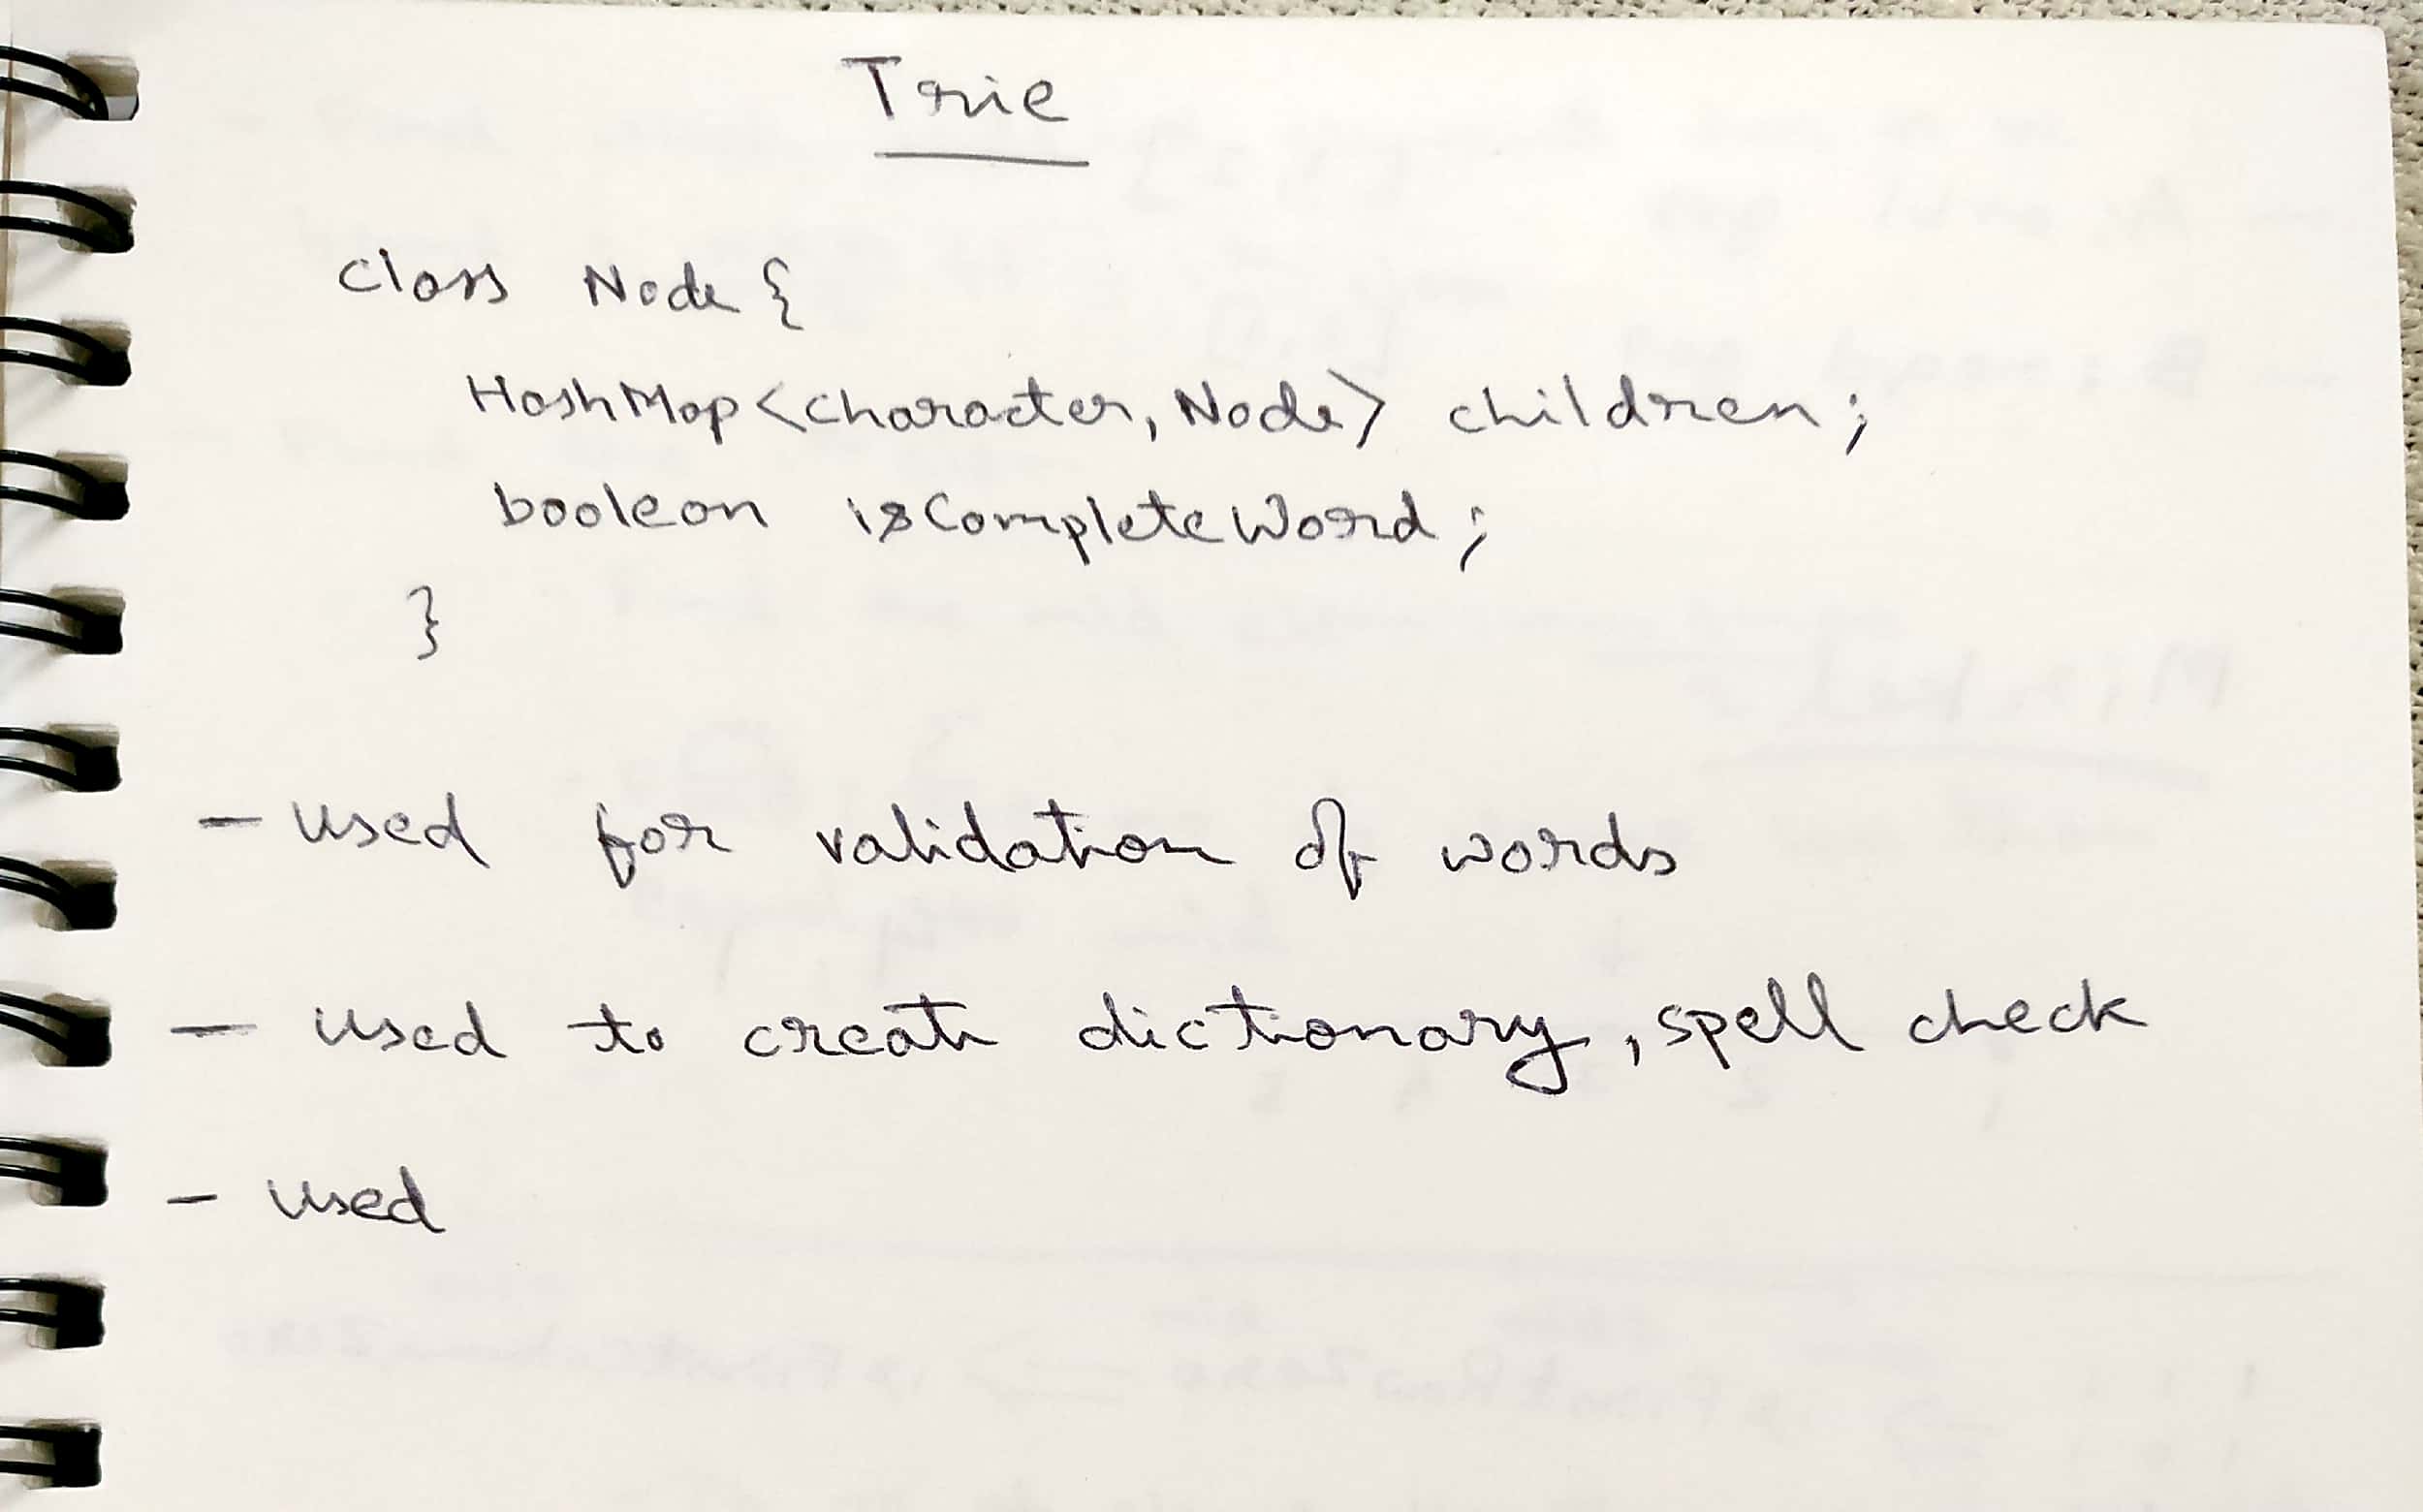 Trie
class Node {
HashMap<Character, Node> children;
boolean isCompleteWord;
}
- used for validation of words
- used to create dictionary, spell check
- used